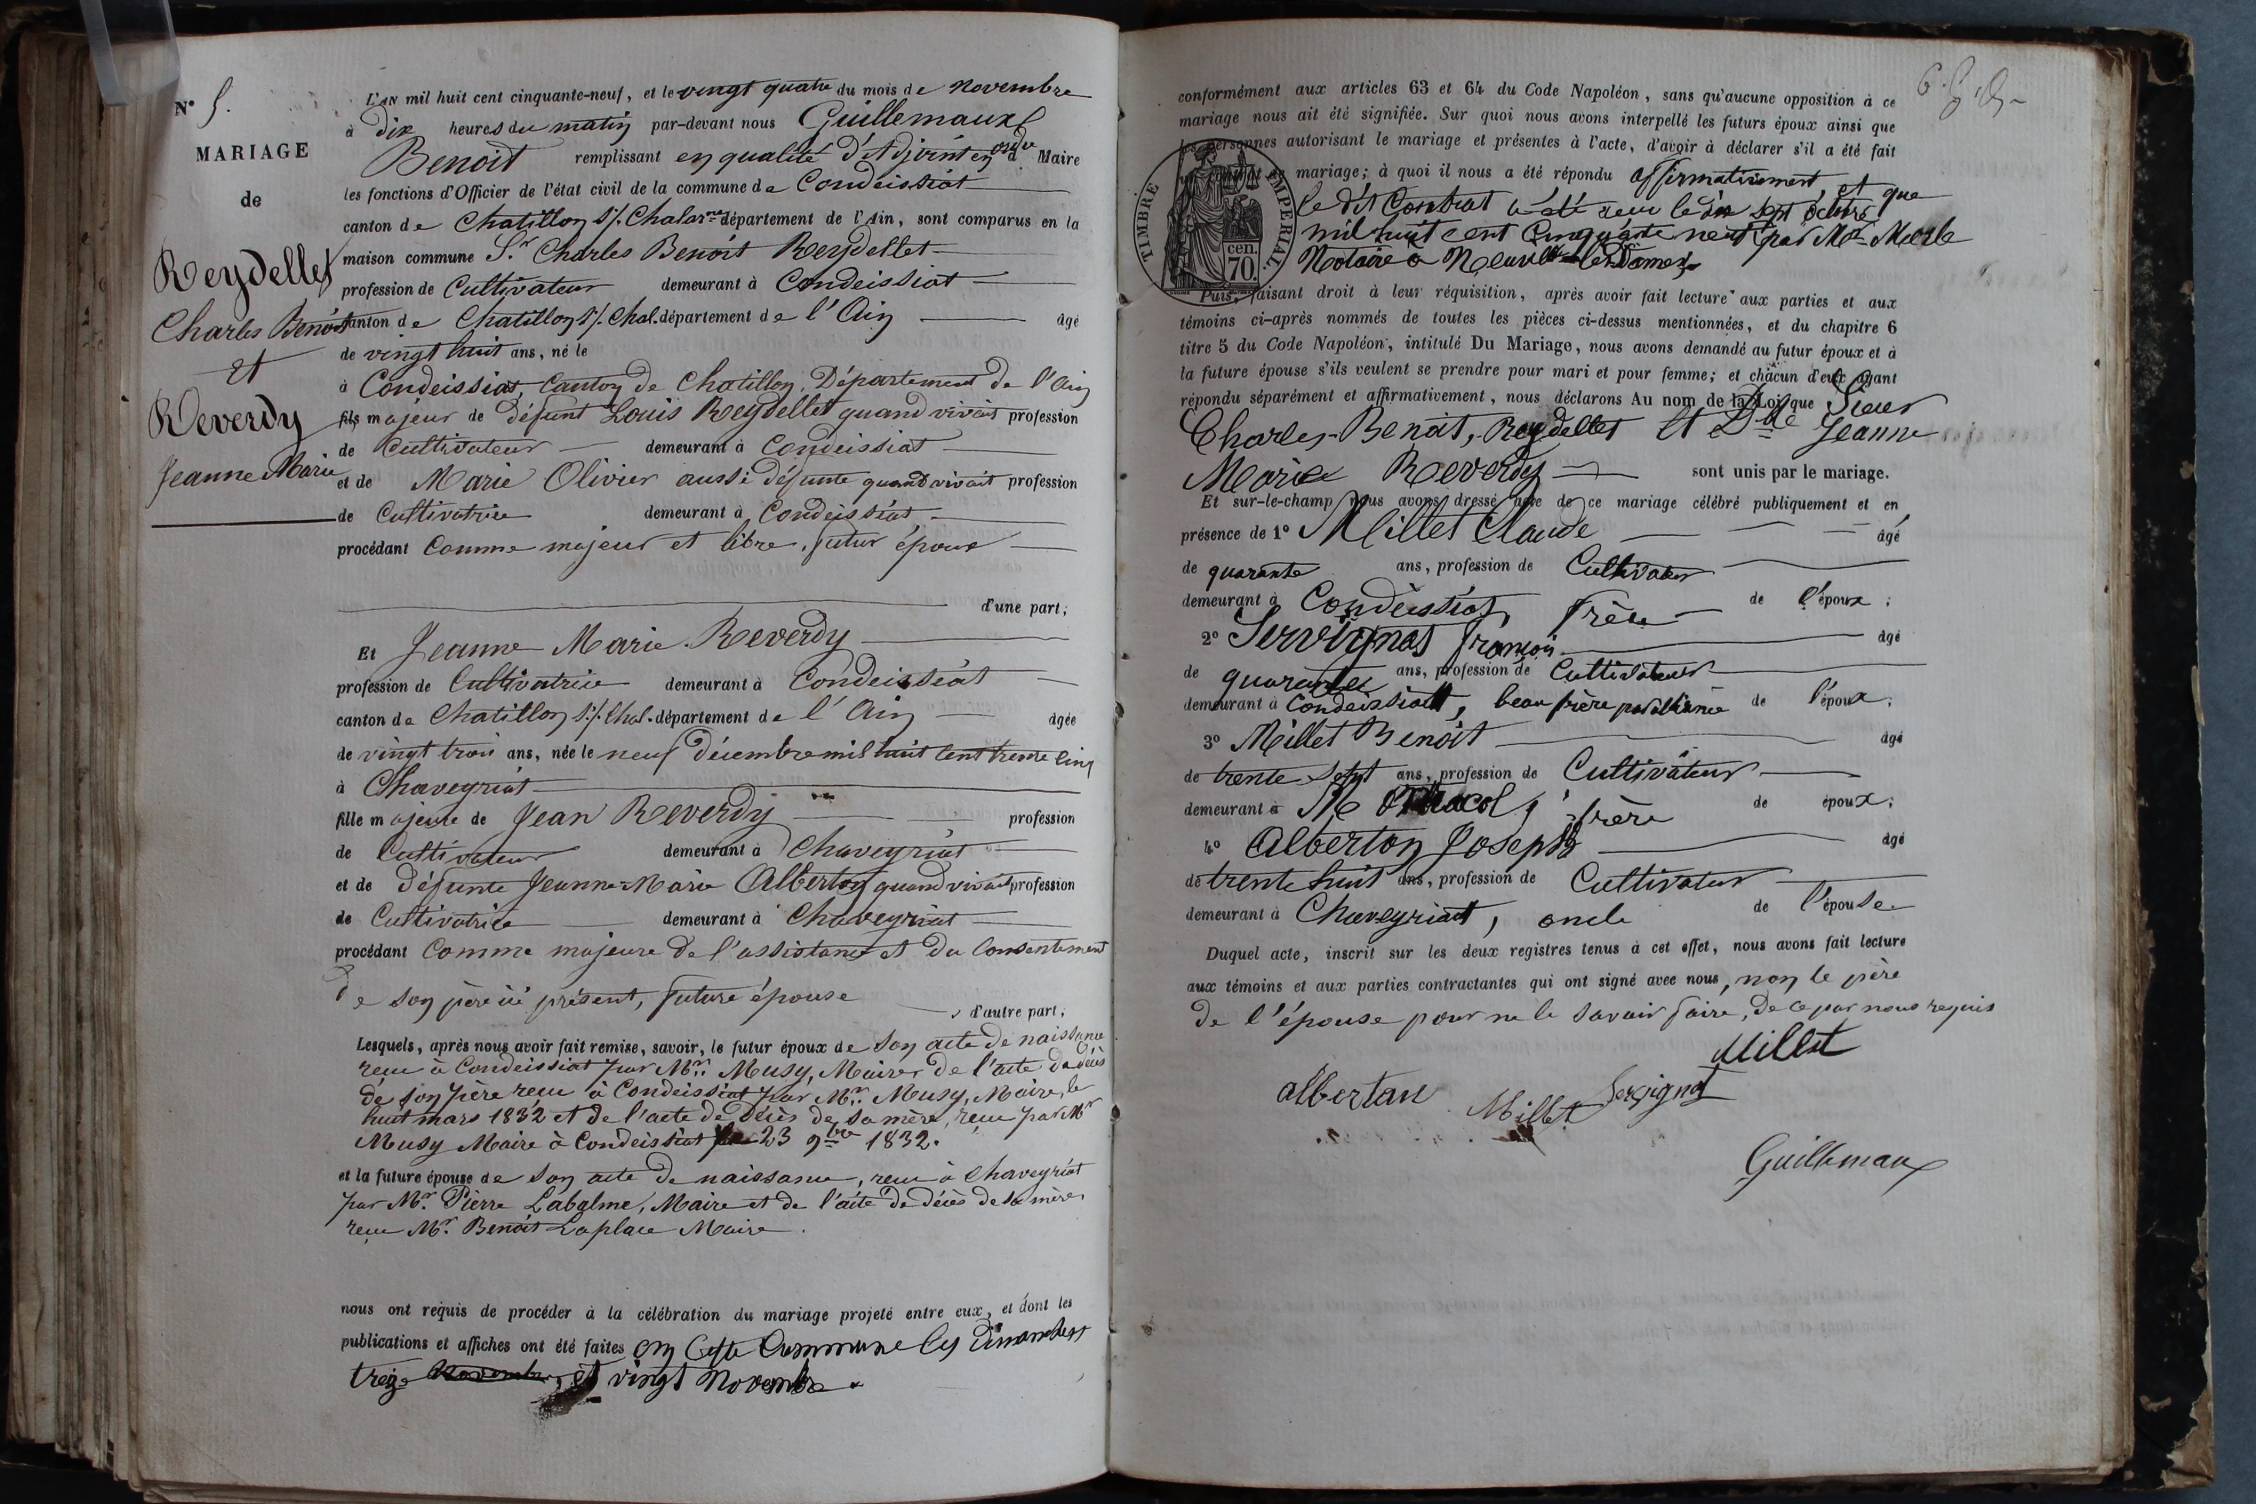 N° 5.
MARIAGE
de
Reydellet
Charles Benoît
et
Reverdy
Jeanne Marie
L'AN mil huit cent cinquante-neuf, et le vingt quatre du mois de novembre
à dix heures du matin par-devant nous Guillemaux
Benoit remplissant en qualité d'Adjoint en Maire
les fonctions d'Officier de l'état civil de la commune de Condeissiat
canton de Chatillon s/. Chalarne département de l'Ain, sont comparus en la
maison commune Sr Charles Benoit Reydellet
profession de Cultivateur demeurant à Condeissiat
canton de Chatillon s/. Chal. département de l'Ain âgé
de vingt huit ans, né le
à Condeissiat, Canton de Chatillon, Département de l'Ain
fils majeur de défunt Louis Reydellet quand vivait profession
de Cultivateur demeurant à Condeissiat
et de Marie Olivier aussi défunte quand vivait profession
de Cultivatrice demeurant à Condeissiat
procédant comme majeur et libre, futur époux
d'une part;
Et Jeanne Marie Reverdy
profession de Cultivatrice demeurant à Condeissiat
canton de Chatillon s/. Chal. département de l'Ain âgée
de vingt trois ans, née le neuf décembre mil huit cent trente cinq
à Chaveyriat
fille majeure de Jean Reverdy profession
de Cultivateur demeurant à Chaveyriat
et de défunte Jeanne Marie Alberton quand vivait profession
de Cultivatrice demeurant à Chaveyriat
procédant comme majeure de l'assistance et du consentement
de son père ici présent, future épouse
d'autre part;
Lesquels, après nous avoir fait remise, savoir, le futur époux de son acte de naissance
reçu à Condeissiat par Mr. Musy, Maire, de l'acte de décès
de son père reçu à Condeissiat par Mr. Musy, Maire, le
huit mars 1832 et de l'acte de décès de sa mère, reçu par Mr
Musy Maire à Condeissiat 23 9bre 1832.
et la future épouse de son acte de naissance, reçu à Chaveyriat
par Mr. Pierre Labalme, Maire et de l'acte de décès de sa mère
reçu Mr. Benoit Laplace Maire.
nous ont requis de procéder à la célébration du mariage projeté entre eux, et dont les
publications et affiches ont été faites en Cette Commune les dimanches
treize novembre, et vingt novembre
conformément aux articles 63 et 64 du Code Napoléon, sans qu'aucune opposition à ce
mariage nous ait été signifiée. Sur quoi nous avons interpellé les futurs époux ainsi que
les personnes autorisant le mariage et présentes à l'acte, d'avoir à déclarer s'il a été fait
mariage; à quoi il nous a été répondu affirmativement, et que
TIMBRE IMPERIAL.
cen.
70.
le dit Contrat a été reçu le dix sept octobre
mil huit cent Cinquante neuf par Me Merle
Notaire à Neuville les Dames
Puis, faisant droit à leur réquisition, après avoir fait lecture aux parties et aux
témoins ci-après nommés de toutes les pièces ci-dessus mentionnées, et du chapitre 6
titre 5 du Code Napoléon, intitulé Du Mariage, nous avons demandé au futur époux et à
la future épouse s'ils veulent se prendre pour mari et pour femme; et chacun d'eux ayant
répondu séparément et affirmativement, nous déclarons Au nom de la Loi que Sieur
Charles-Benoit, Reydellet et Dlle Jeanne
Marie Reverdy sont unis par le mariage.
Et sur-le-champ nous avons dressé acte de ce mariage célébré publiquement et en
présence de 1° Millet Claude âgé
de quarante ans, profession de Cultivateur
demeurant à Condeissiat, frère de l'époux;
2° Servignat françois âgé
de quarante ans, profession de Cultivateur
demeurant à Condeissiat, beau frère par alliance de l'époux;
3° Millet Benoît âgé
de trente sept ans, profession de Cultivateur
demeurant à frère de époux;
4° Alberton Joseph âgé
de trente huit ans, profession de Cultivateur
demeurant à Chaveyriat, oncle de l'épouse
Duquel acte, inscrit sur les deux registres tenus à cet effet, nous avons fait lecture
aux témoins et aux parties contractantes qui ont signé avec nous, non le père
de l'épouse pour ne le savoir faire, de ce par nous requis
Millet
albertan Millet Servignat
Guillemaux